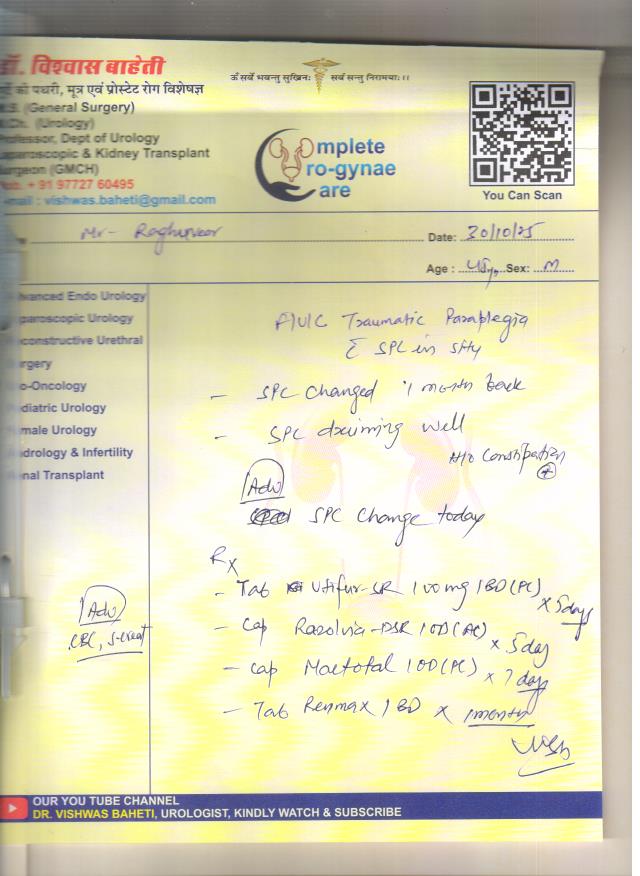 डॉ. विश्वास बाहेती
की पथरी, मूत्र एवं प्रोस्टेट रोग विशेषज्ञ
(General Surgery)
(Urology)
Professor, Dept of Urology
Laparoscopic & Kidney Transplant
Surgeon (GMCH)
+ 91 97727 60495
Email : vishwas.baheti@gmail.com
ॐ सर्वे भवन्तु सुखिनः सर्वे सन्तु निरामयाः।।
Complete
Uro-gynae
Care
You Can Scan
Mr- Raghuveer
Date: 30/10/25
Age : 45y Sex: M
Advanced Endo Urology
Laparoscopic Urology
Reconstructive Urethral
Surgery
Uro-Oncology
Pediatric Urology
Female Urology
Andrology & Infertility
Renal Transplant
F/U/C Traumatic Paraplegia
SPC in
- SPC changed 1 month back
- SPC draining well
H/o Constipation
+
Adv
SPC Change today
Rx
- Tab Utifur-SR 100mg 1BD (PC) x 5days
- Cap Razolvia-DSR 1OD (AC) x 5day
- Cap Mactotal 1OD (PC) x 7 days
- Tab Renmax 1BD x 1month
Adv
CBC, S-creat
OUR YOU TUBE CHANNEL
DR. VISHWAS BAHETI, UROLOGIST, KINDLY WATCH & SUBSCRIBE